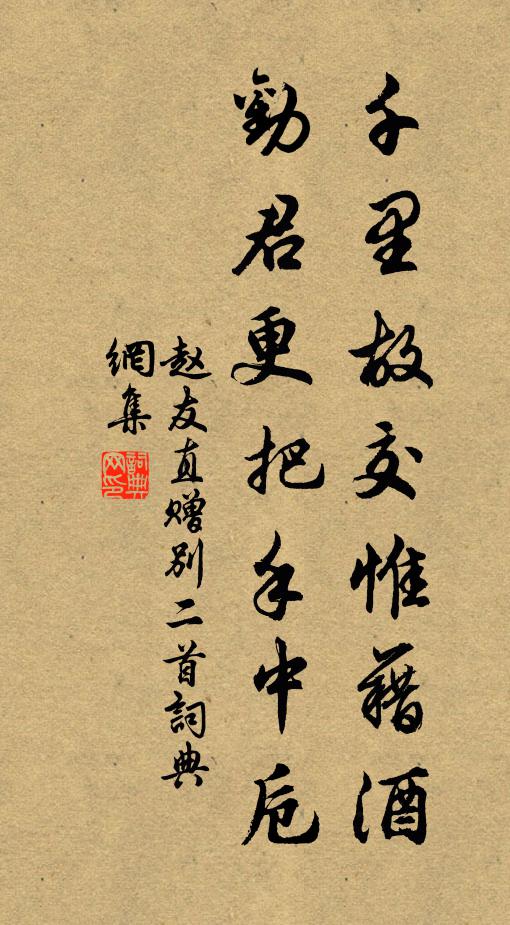 千里故交惟藉酒
勸君更把手中卮
赵友直赠别二首詞典
網集
詞典网印